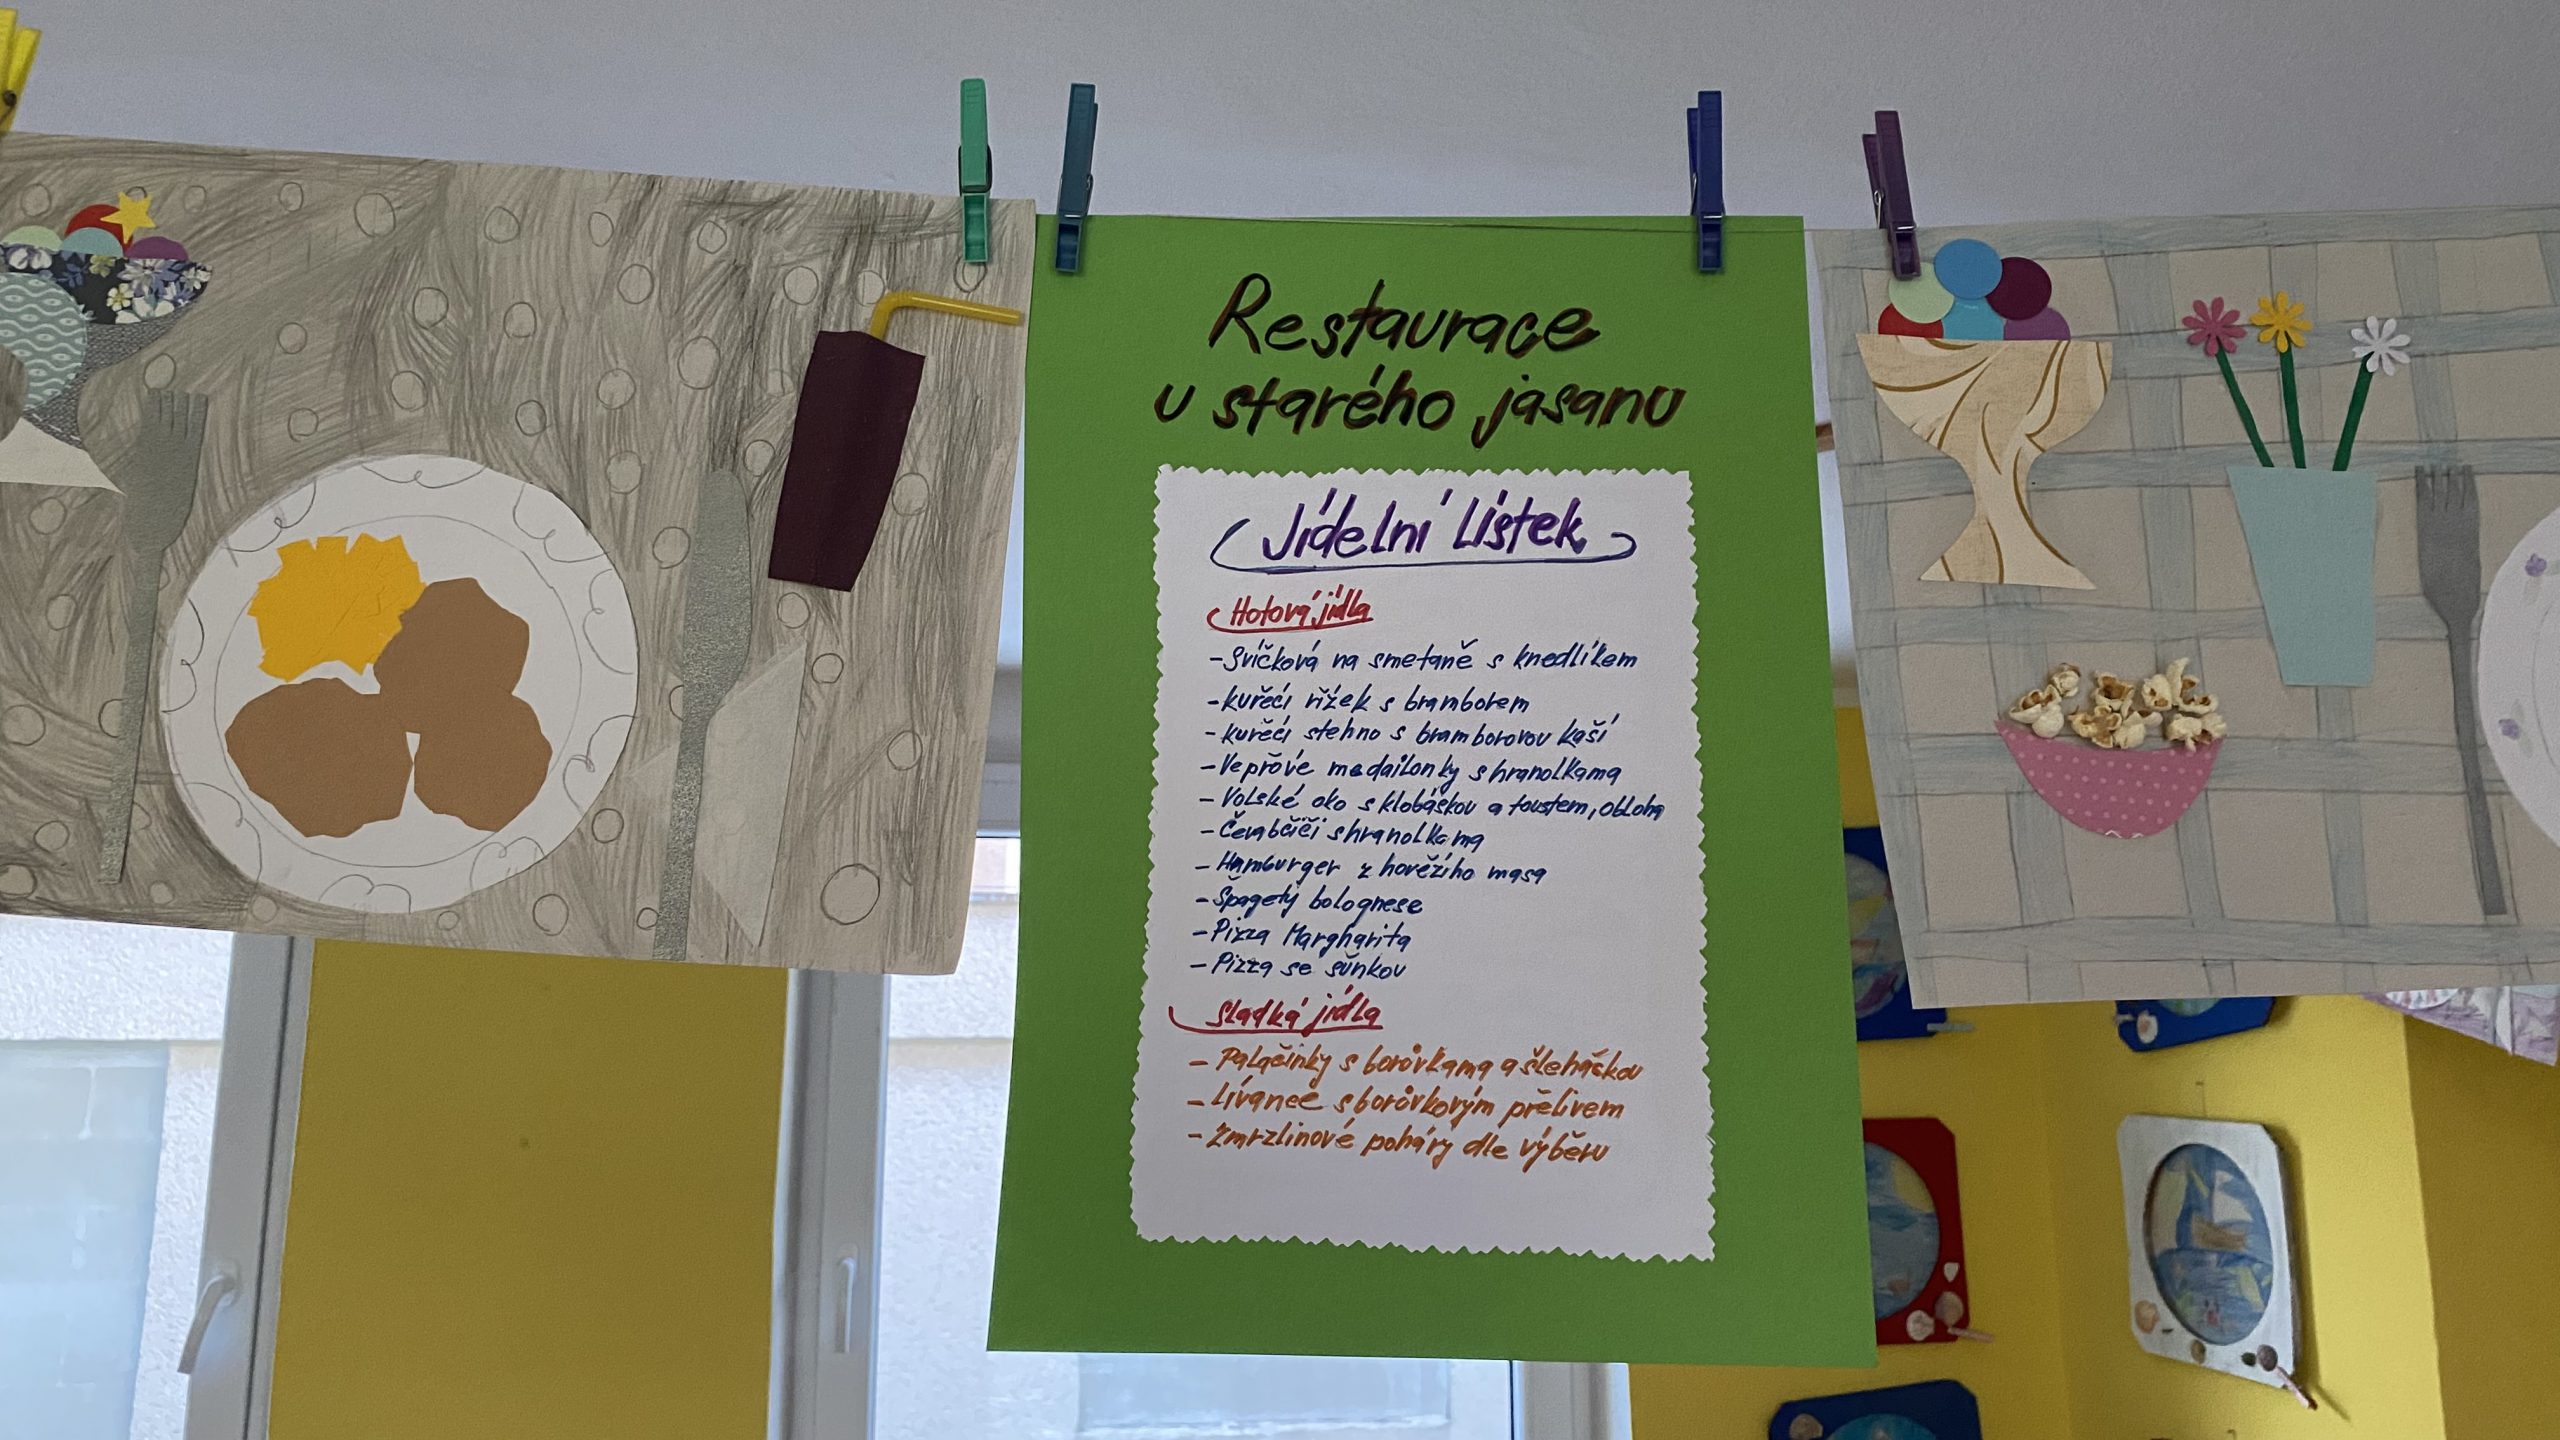 Restaurace
u starého jasanu
Jídelní lístek
Hotová jídla
- Svíčková na smetaně s knedlíkem
- kuřecí řízek s bramborem
- kuřecí stehno s bramborovou kaší
- Vepřové medailonky s hranolkama
- Volské oko s klobáskou a toustem, obloha
- Čevabčiči s hranolkama
- Hamburger z hovězího masa
- Špagety bolognese
- Pizza Margharita
- Pizza se šůnkou
Sladká jídla
- Palačinky s borůvkama a šleháčkou
- Lívance s borůvkovým přelivem
- Zmrzlinové poháry dle výběru